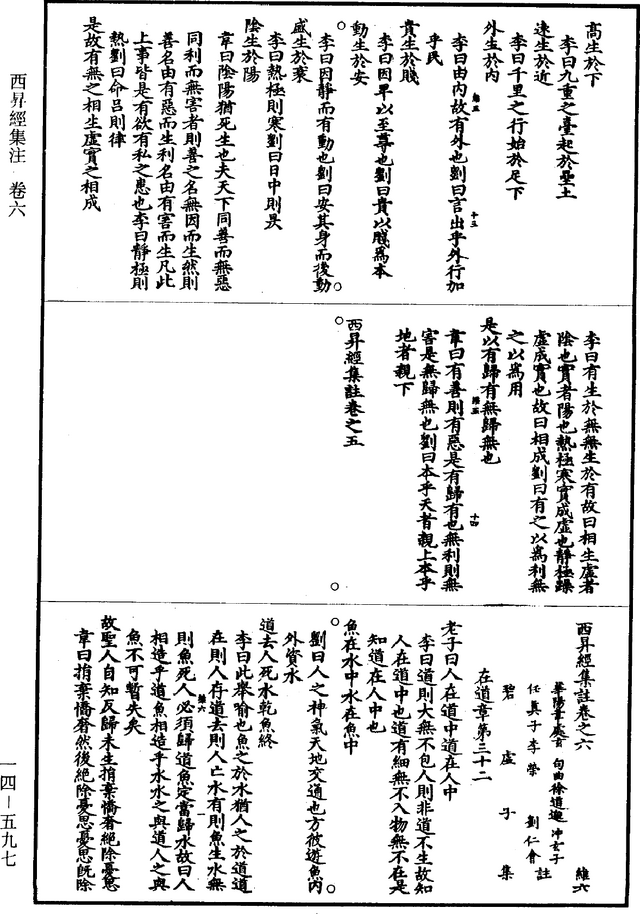 高生於下
李曰九重之臺起於壘土
遠生於近
李曰千里之行始於足下
外生於內
李曰由內故有外也劉曰言出乎外行加
乎民
貴生於賤
李曰因卑以至尊也劉曰貴以賤爲本
動生於安
李曰因靜而有動也劉曰安其身而後動
盛生於衰
李曰熱極則寒劉曰日中則昃
陰生於陽
韋曰陰陽猶死生也夫天下同善而無惡
同利而無害者則善之名無因而生然則
善名由有惡而生利名由有害而生凡此
上事皆是有欲有私之患也李曰靜極則
熱劉曰命呂則律
是故有無之相生虛實之相成
李曰有生於無無生於有故曰相生虛者
陰也實者陽也熱極寒實成虛也靜極躁
虛成實也故曰相成劉曰有之以爲利無
之以爲用
是以有歸有無歸無也
韋曰有善則有惡是有歸有也無利則無
害是無歸無也劉曰本乎天者親上本乎
地者親下
西昇經集註卷之五
西昇經集註卷之六
維六
華陽韋處玄
句曲徐道邈
冲玄子
任真子李榮
劉仁會
註
碧虛子
集
在道章第三十二
老子曰人在道中道在人中
李曰道則大無不包人則非道不生故知
人在道中也道有細無不入物無不在是
知道在人中也
魚在水中水在魚中
劉曰人之神氣天地交通也方彼遊魚內
外資水
道去人死水乾魚終
李曰此舉喻也魚之於水猶人之於道道
在則人存道去則人亡水有則魚生水無
則魚死人必須歸道魚定當歸水故曰人
相造乎道魚相造乎水水之與道人之與
魚不可暫失矣
故聖人自知反歸未生捐棄憍奢絕除憂思
韋曰捐棄憍奢然後絕除憂思憂思旣除
西昇經集注 卷六
一四－五九七